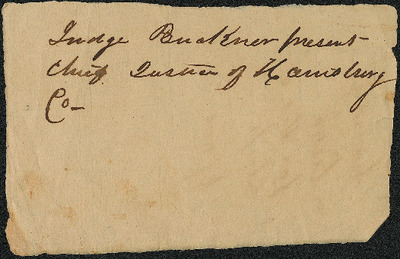 Judge Buckner present
Chief Justice of Harrisburg
Co-